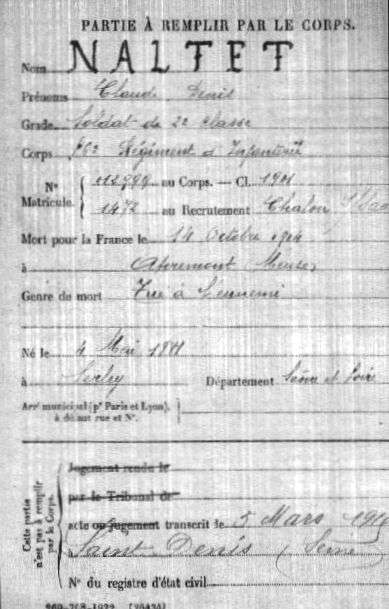 PARTIE À REMPLIR PAR LE CORPS.
Nom NALTET
Prénoms Claude Denis
Grade Soldat de 2e classe
Corps Régiment d'Infanterie
N° Matricule. 012999 au Corps. — Cl. 1901
1472 au Recrutement Chalon S/Saône
Mort pour la France le 14 Octobre 1914
à Apremont Meuse
Genre de mort Tué à l'ennemi
Né le 4 Mai 1881
à Serley Département Saône et Loire
Arrt municipal (pr Paris et Lyon),
à défaut rue et N°.
Cette partie n'est pas à remplir par le Corps.
Jugement rendu le
par le Tribunal de
acte ou jugement transcrit le 5 Mars
à Saint Denis (Seine)
N° du registre d'état civil